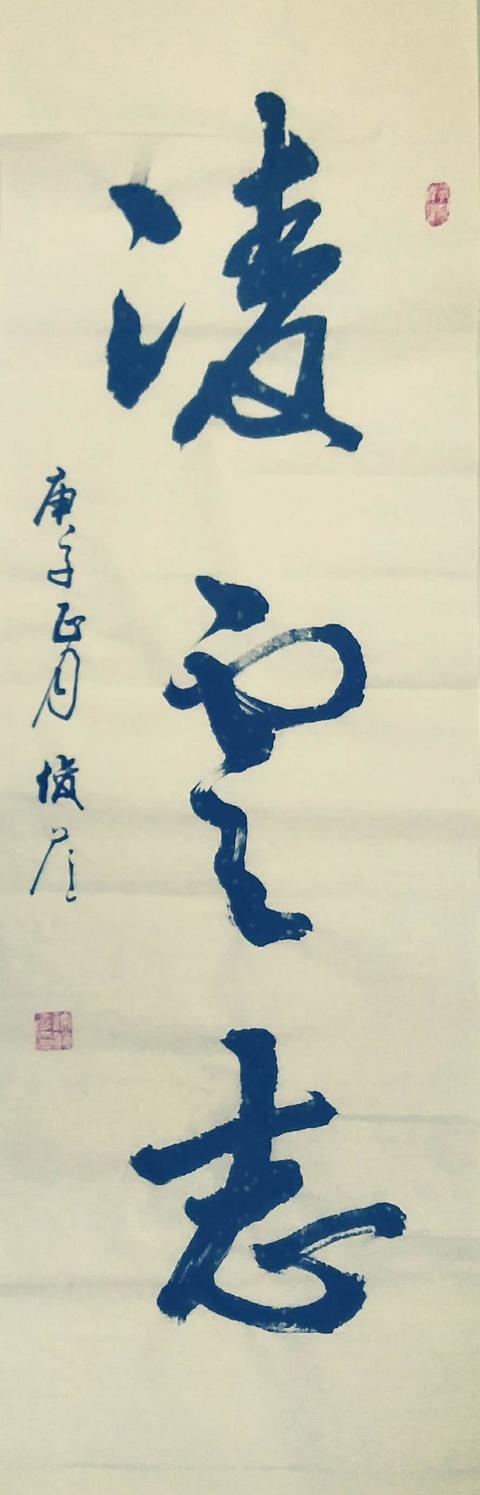 凌雲志
庚子正月